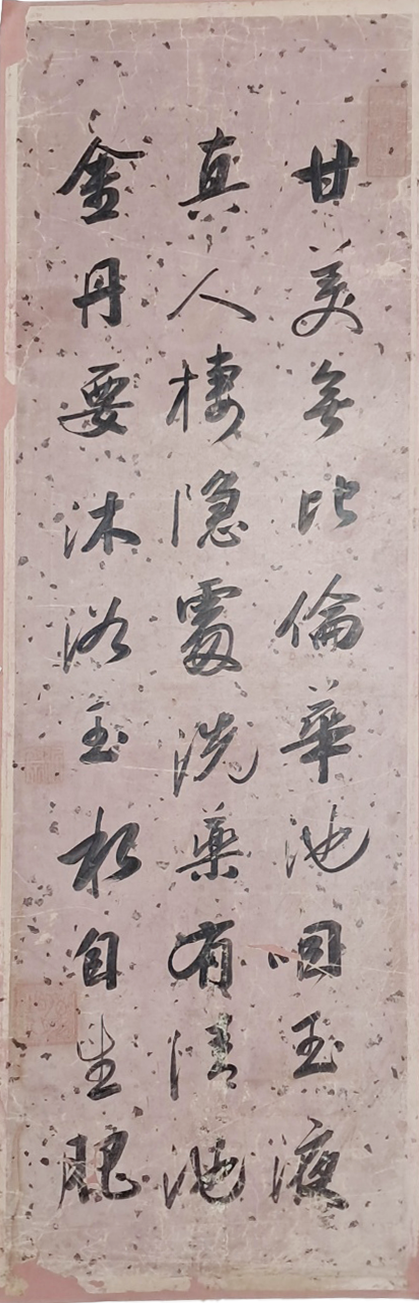 甘美無比倫華池咽玉液
真人棲隱處洗藥有清池
金丹要沐浴玉自生